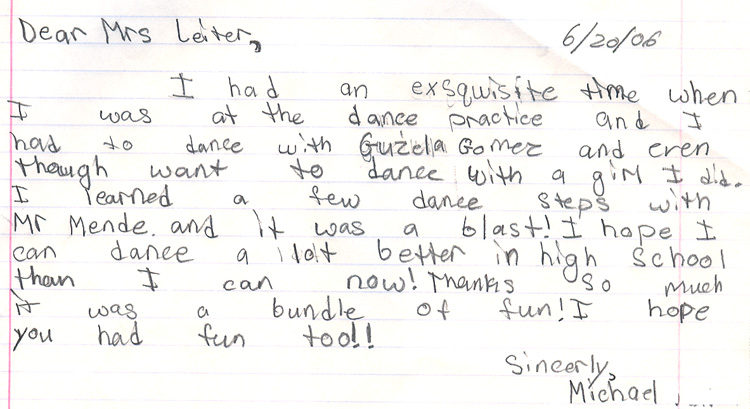 Dear Mrs Leiter,
6/20/06
I had an exsquisite time when
I was at the dance practice and I
had to dance with Guzela Gomez and even
though want to dance with a girl I did.
I learned a few dance steps with
Mr Mende. and it was a blast! I hope I
can dance a lott better in high school
than I can now! Thanks so much
it was a bundle of fun! I hope
you had fun too!!
Sincerly,
Michael